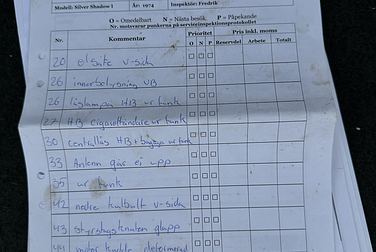 Modell: Silver Shadow I År: 1974 Inspektör: Fredrik
O = Omedelbart N = Nästa besök P = Påpekande
Nr. motsvarar punkerna på serviceinspektionsprotokollet
Prioritet Pris inkl. moms
Nr. Kommentar O N P Reservdel Arbete Totalt
20 elsäte v-sida
26 innerbelysning VB
26 läslampa HB ur funk
27 HB cigarettändare ur funk
30 centrallås HB + baglucka ur funk
33 går ej upp
35 ur funk
42 nedre kulbult v-sida
43 glapp
44 deformerad